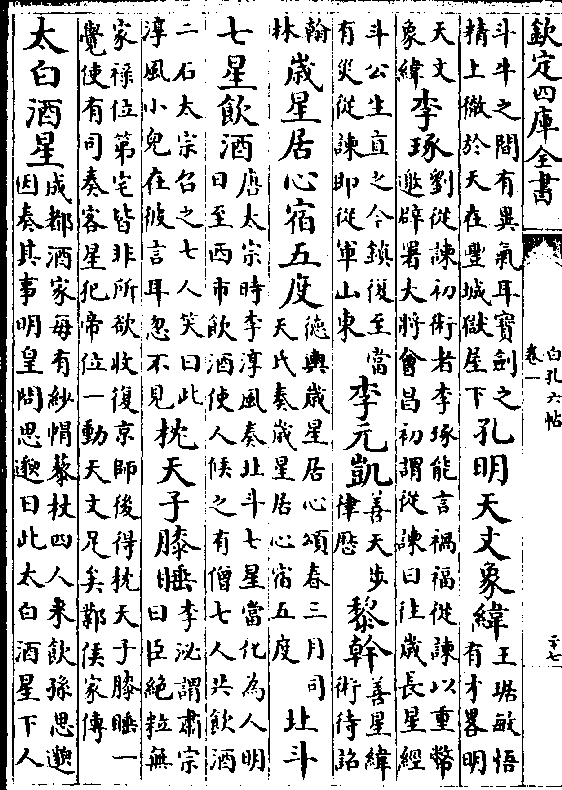 欽定四庫全書
白孔六帖
卷一
二十七
斗牛之間有異氣耳寶劍之
精上徹於天在豐城獄屋下
孔明天文象緯
王琚敏悟
有才畧明
天文
象緯
李琢
劉從諫初術者李琢能言禍福從諫以重幣
邀辟署大將會昌初謂從諫曰往歲長星經
斗公生直之今鎮復至當
有災從諫即從軍山東
李元凱
善天步
律厯
黎幹
善星緯
術待詔
翰
林
歲星居心宿五度
德輿歲星居心頌春三月司
天氏奏歲星居心宿五度
北斗
七星飲酒
唐太宗時李淳風奏北斗七星當化為人明
日至西市飲酒使人候之有僧七人共飲酒
二石太宗召之七人笑曰此
淳風小兒在彼言耳忽不見
枕天子膝睡
李泌謂肅宗
曰臣絶粒無
家祿位第宅皆非所欲收復京師後得枕天子膝睡一
覺使有司奏客星犯帝位一動天文足矣鄴侯家傳
太白酒星
成都酒家每有紗帽藜杖四人來飲孫思邈
因奏其事明皇問思邈曰此太白酒星下人